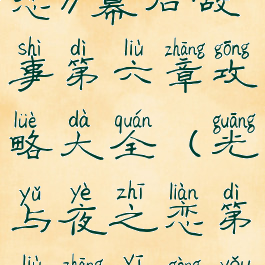 恋》幕后故
shì dì liù zhāng gōng
事第六章攻
lüè dà quán guāng
略大全（光
yǔ yè zhī liàn dì
与夜之恋第
liù zhāng yī gòng yǒu